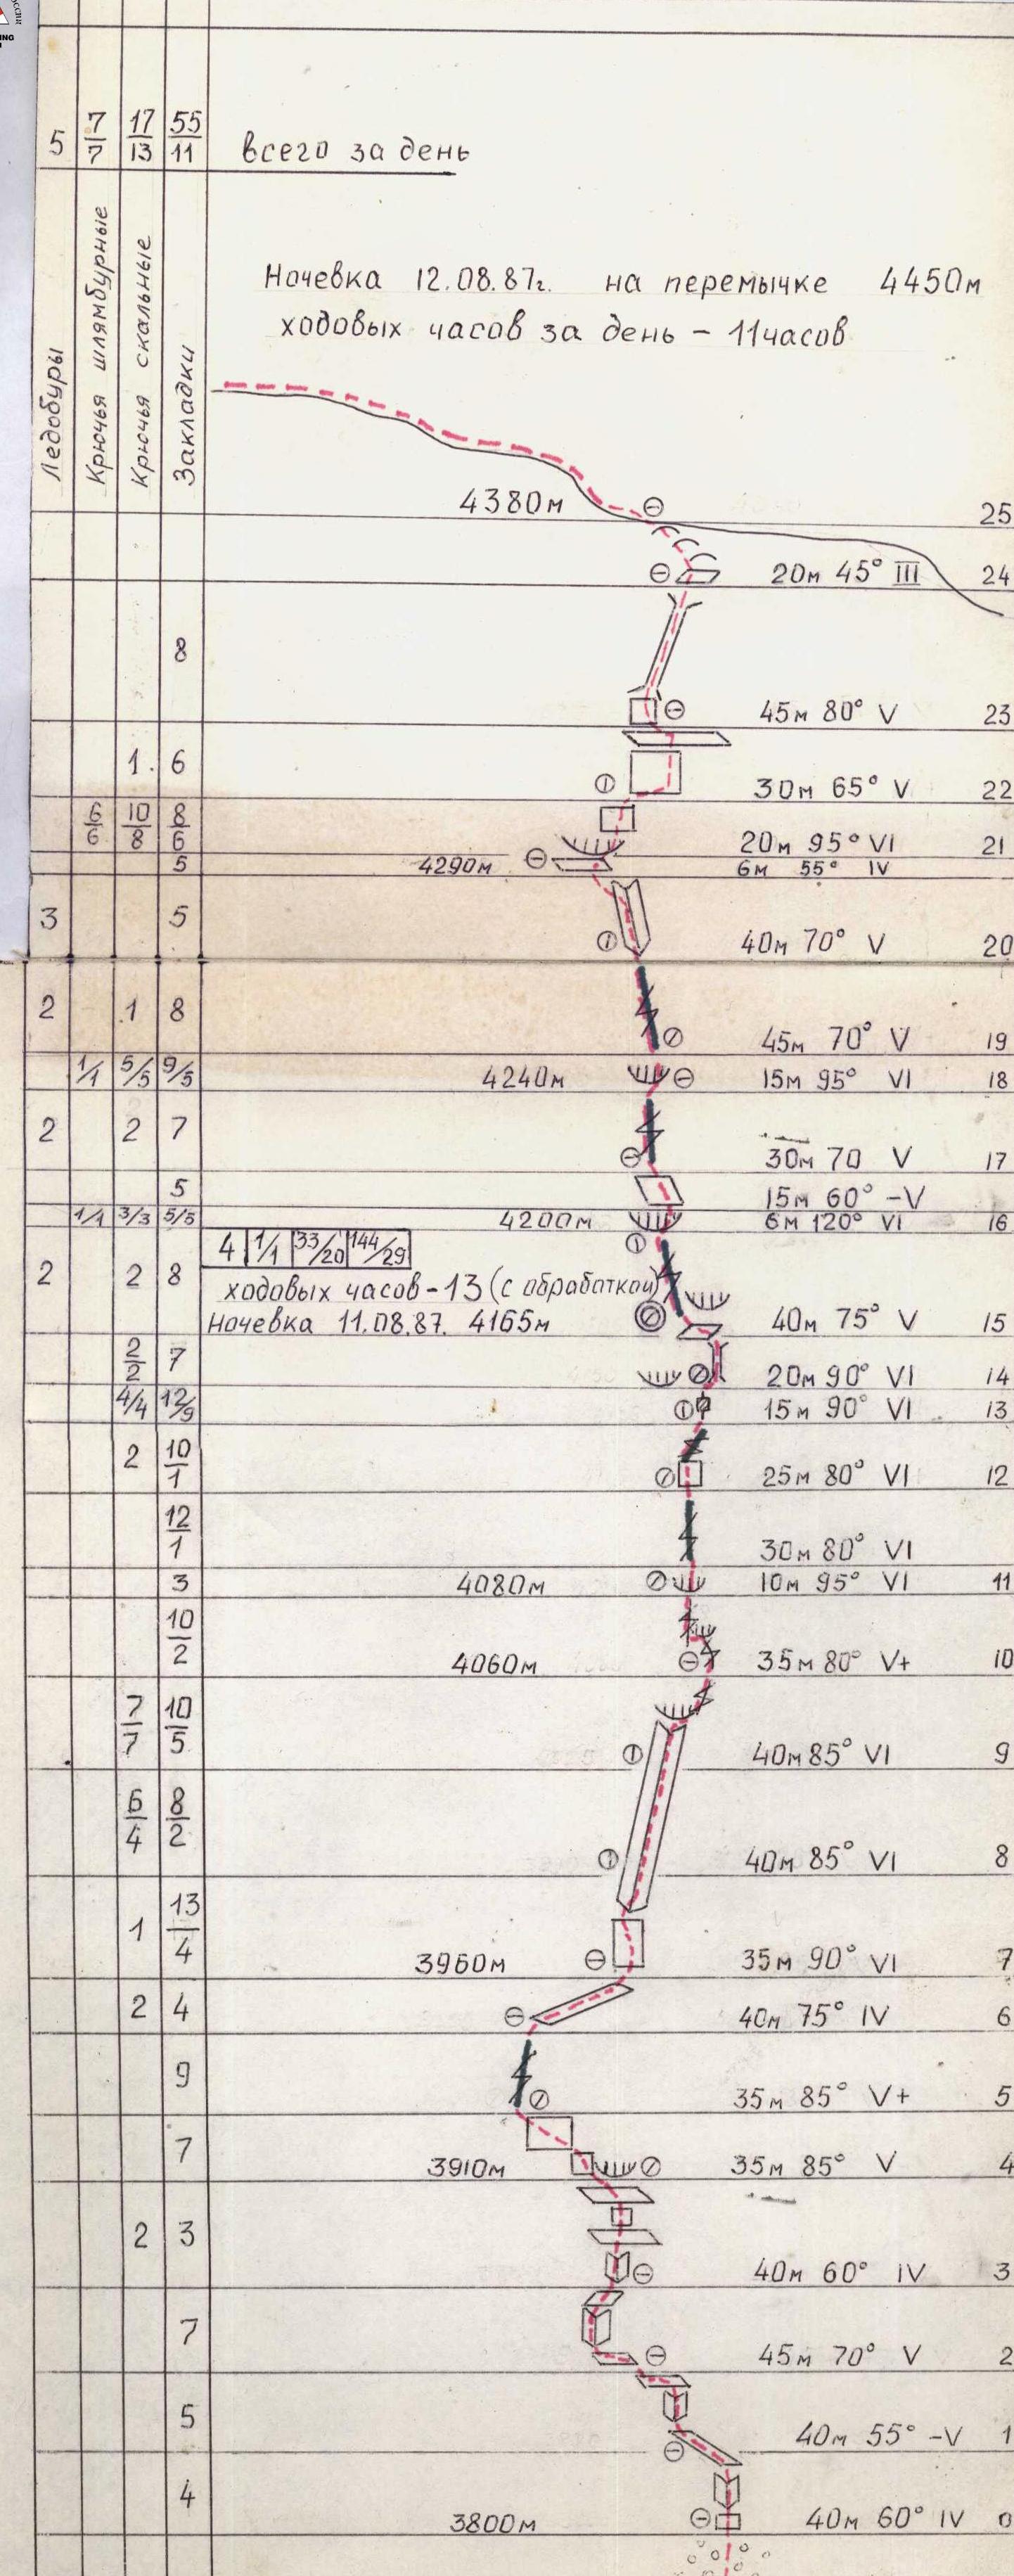 5 7/7 17/13 55/11 всего за день
Ледобуры
Крючья шлямбурные
Крючья скальные
Закладки
Ночевка 12.08.87г. на перемычке 4450м
ходовых часов за день - 11часов
4380м 25
20м 45° III 24
8 45м 80° V 23
1. 6 30м 65° V 22
6/6 10/8 8/6 20м 95° VI 21
5 4290м 6м 55° IV
3 5 40м 70° V 20
2 1 8 45м 70° V 19
1/1 5/5 9/5 4240м 15м 95° VI 18
2 2 7 30м 70 V 17
5 15м 60° -V
1/1 3/3 5/5 4200м 6м 120° VI 16
4 1/1 33/20 144/29
ходовых часов-13 (с обработкой)
2 2 8 Ночевка 11.08.87. 4165м 40м 75° V 15
2/2 7 20м 90° VI 14
4/4 12/9 15м 90° VI 13
2 10/1 25м 80° VI 12
12/1 30м 80° VI
3 4080м 10м 95° VI 11
10/2 4060м 35м 80° V+ 10
7/7 10/5 40м 85° VI 9
6/4 8/2 40м 85° VI 8
1 13/4 3960м 35м 90° VI 7
2 4 40м 75° IV 6
9 35м 85° V+ 5
7 3910м 35м 85° V 4
2 3 40м 60° IV 3
7 45м 70° V 2
5 40м 55° -V 1
4 3800м 40м 60° IV 0